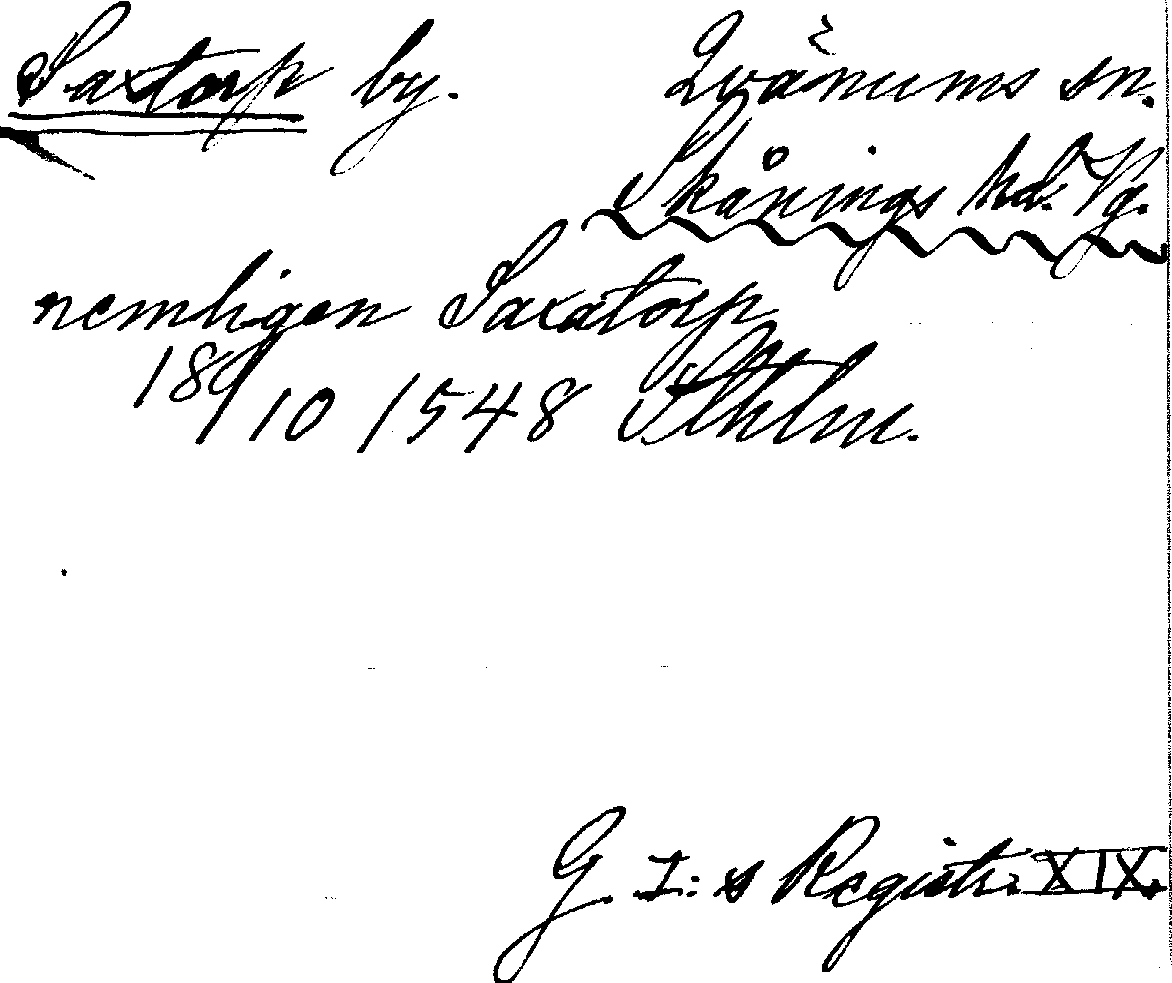 Saxtorp by. Qvänums sn.
Skånings hd. Vg.
nemligen Saxatorp
18/10 1548 Sthlm.
G. I:s Registr. XIX.